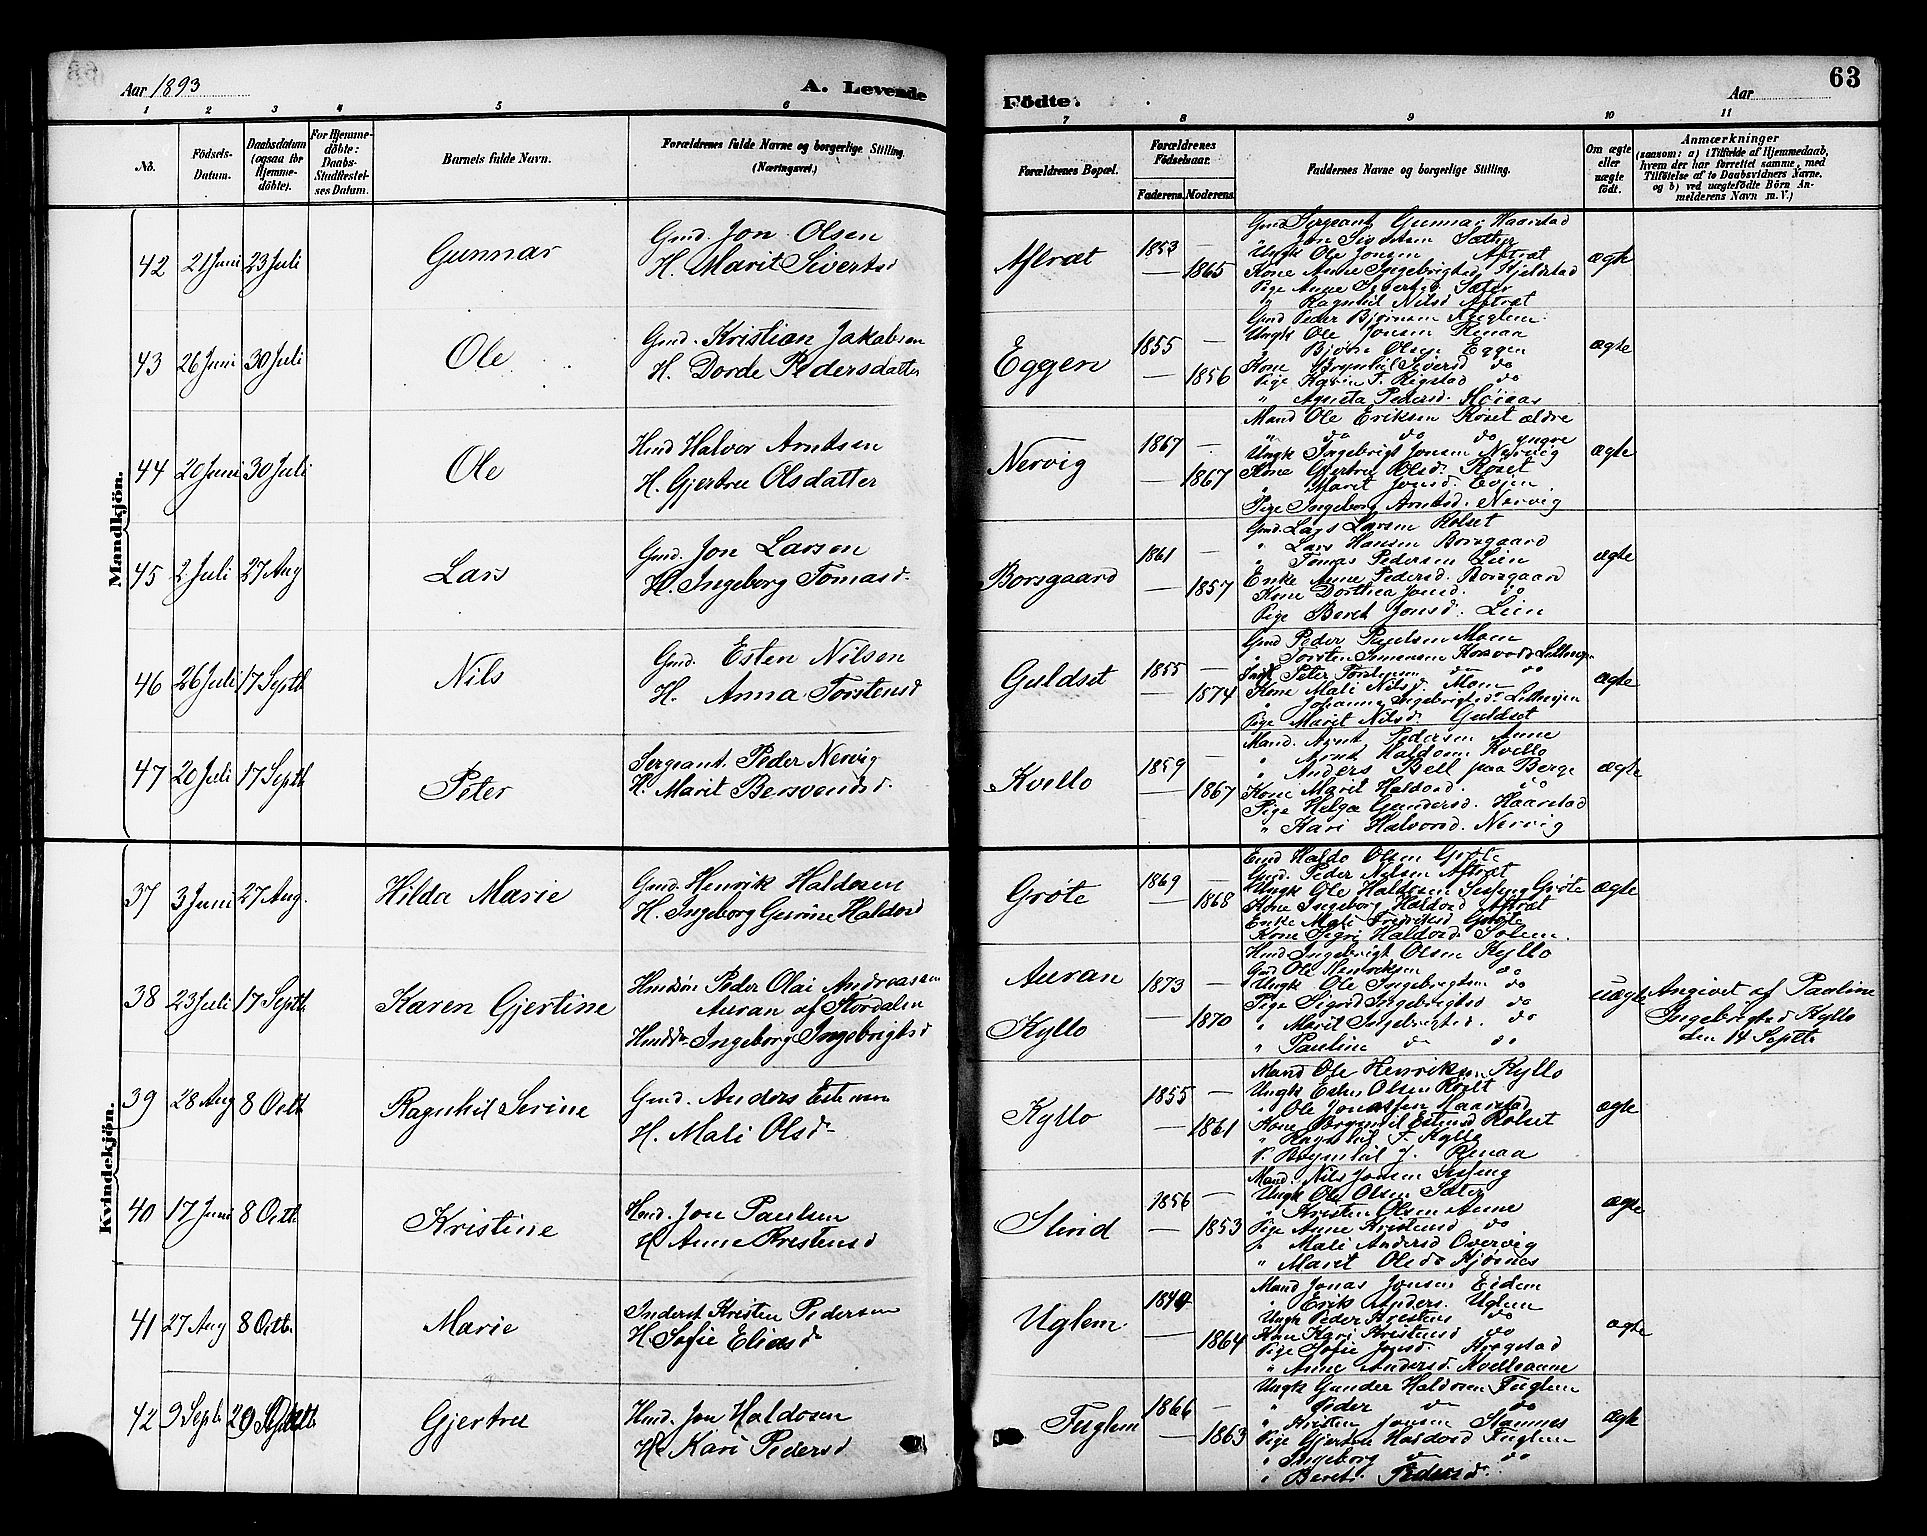 63
Aar 1893
A. Levende
Födte.
Aar
1 2 3 4 5 6 7 8 9 10 11
No.
Födsels-Datum.
Daabsdatum (ogsaa for Hjemme-döbte).
For Hjemme-döbte: Daabs-Stadfæstel-ses Datum.
Barnets fulde Navn.
Forældrenes fulde Navne og borgerlige Stilling. (Næringsvei.)
Forældrenes Bopæl.
Forældrenes Födselsaar.
Faderens. Moderens.
Faddernes Navne og borgerlige Stilling.
Om ægte eller uægte födt.
Anmærkninger
(saasom: a) i Tilfælde af Hjemmedaab, hvem der har forrettet samme, med Tilföielse af to Daabsvidners Navne, og b) ved uægtefödte Börn An-melderens Navn m. V.)
Mandkjön.
42 21 Juni 23 Juli Gunnar
Gmd. Jon Olsen
H. Marit Sivertsd
Aftrat 1853 — 1865 ægte
Gmd Sergeant Gunnar Haarstad
" Jon Sivertsen Sæther
Ungk Ole Jonsen Aftrat
Kone Anne Ingebrigtsd Kjelstad
Pige Anne Sivertsd Sæter
" Ragnhil Nilsd Aftrat
43 26 Juni 30 Juli Ole
Gmd. Kristian Jakobsen
H. Dorde Pedersdatter
Eggen 1855 — 1856 ægte
Gmd Peder Bjørnsen Kuglem
Ungk Ole Jonsen Renaa
" Bjørn Olsen Eggen
Kone Brynhil Siversd do
Pige Karin T. Rigstad do
" Agneta Pedersd.
44 20 Juni 30 Juli Ole
Hmd Halvor Arntsen
H. Gjertru Olsdatter
Nervig 1867 — 1867 ægte
Mand Ole Eriksen Roset ældre
" do do do yngre
Ungk Ingebrigt Jonsen Nervig
Kone Gjertru Olsd. Roset
" Marit Jonsd. Evjen
Pige Ingeborg Arntsd. Nervig
45 2 Juli 27 Aug Lars
Gmd. Jon Larsen
H. Ingeborg Tomasd.
Borsgaard 1861 — 1857 ægte
Gmd. Lars Larsen Rolset
" Lars Hansen Borsgaard
" Tomas Pedersen Lien
Enke Anne Pedersd. Borsgaard
Kone Dorthea Jonsd. do
Pige Beret Jonsd. Lien
46 26 Juli 17 Septb Nils
Gmd. Esten Nilsen
H. Anna Torstensd
Guldset 1855 — 1874 ægte
Gmd Peder Paulsen Moen
" Torsten
Peter Torstensen do do
Kone Mali Nilsd. Moen
" Johanna Ingebrigtsd. Lillevjen
Pige Marit Nilsd. Guldset
47 20 Juli 17 Septb Peter
Sergeant. Peder Nervig
H. Marit Bersvendsd.
Kvello 1859 — 1867 ægte
Mand. Arnt Pedersen Aune
" Arnt Haldorsen Kvello
" Anders Bell paa Berge
Kone Marit Haldorsd. do
Pige Helga Gundersd. Haarstad
" Kari Halvorsd. Nervig
Kvindekjön.
37 3 Juni 27 Aug. Hilda Marie
Gmd. Henrik Haldosen
H. Ingeborg Gurine Haldosd
Grøte 1869 — 1868 ægte
Haldo Olsen Grøte
Gmd. Peder Nilsen Aftrat
Ungk Ole Haldosen Grøte
Kone Ingeborg Haldosd Aftrat
Enke Mali Fredriksd Grøte
Kone Sigri Haldosd. Solem
38 23 Juli 17 Septb. Karen Gjertine
Hmdsøn Peder Olai Andreassen
Auran af Stordalen
Hmdd. Ingeborg Ingebrigtsd
Auran
Kyllo
1873 — 1870 uægte
Hmd Ingebrigt Olsen Kyllo
Gmd Ole Henriksen do
Ungk Ole Ingebrigtsen do
Pige Sigrid Ingebrigtsd do
" Marit Ingebrigtsd. do
" Pauline do do
Angivet af Pauline
Ingebrigtsd Kyllo
den 14 Septb
39 28 Aug 8 Octb. Ragnhil Serine
Gmd. Anders Estensen
H. Mali Olsd.
Kyllo 1855 — 1861 ægte
Mand Ole Henriksen Kyllo
Ungk Esten Olsen Rolset
" Ole Jonassen Haarstad
Kone Brynhil Estensd Rolset
" Ragnhil T. Kyllo
P. Brynhil J. Renaa
40 17 Juni 8 Octb Kristine
Hmd. Jon Paulsen
H Anne Kristensd
Slind 1856 — 1853 ægte
Mand. Nils Jonsen Selseng
Ungk Ole Olsen Sæter
" Kristen Olsen Aune
Pige Anne Kristensd do
" Mali Andersd Overvig
" Marit Olsd Kjøsnes
41 27 Aug 8 Octb. Marie
Inderst Kristen Pedersen
H. Sofie Eliasd
Uglem 1844 — 1864 ægte
Mand Jonas Jonsen Eidem
" Erik Anders. Uglem
Ungk Peder Kristens do
Kone Kari Kristensd do
Pige Sofie Jonsd. Krogstad
" Anne Andersd. Kvelloaune
42 9 Septb. 29 Septb Gjertru
Hmd. Jon Haldosen
H. Kari Pedersd
Fuglem 1866 — 1863 ægte
Ungk Gunder Haldosen Fuglem
" Peder do do
" Kristen Jonsen Stamnes
Pige Gjertru Haldosd Fuglem
" Ingeborg do do
" Beret Pedersd.